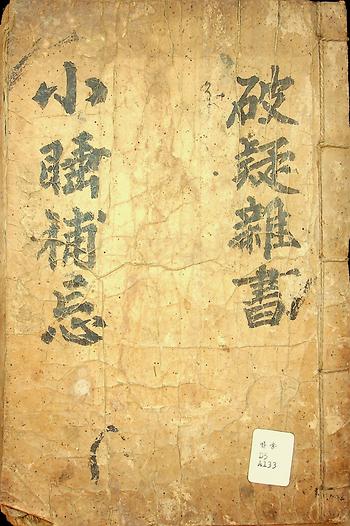 破疑雜書
小睡補忘
D5
A133